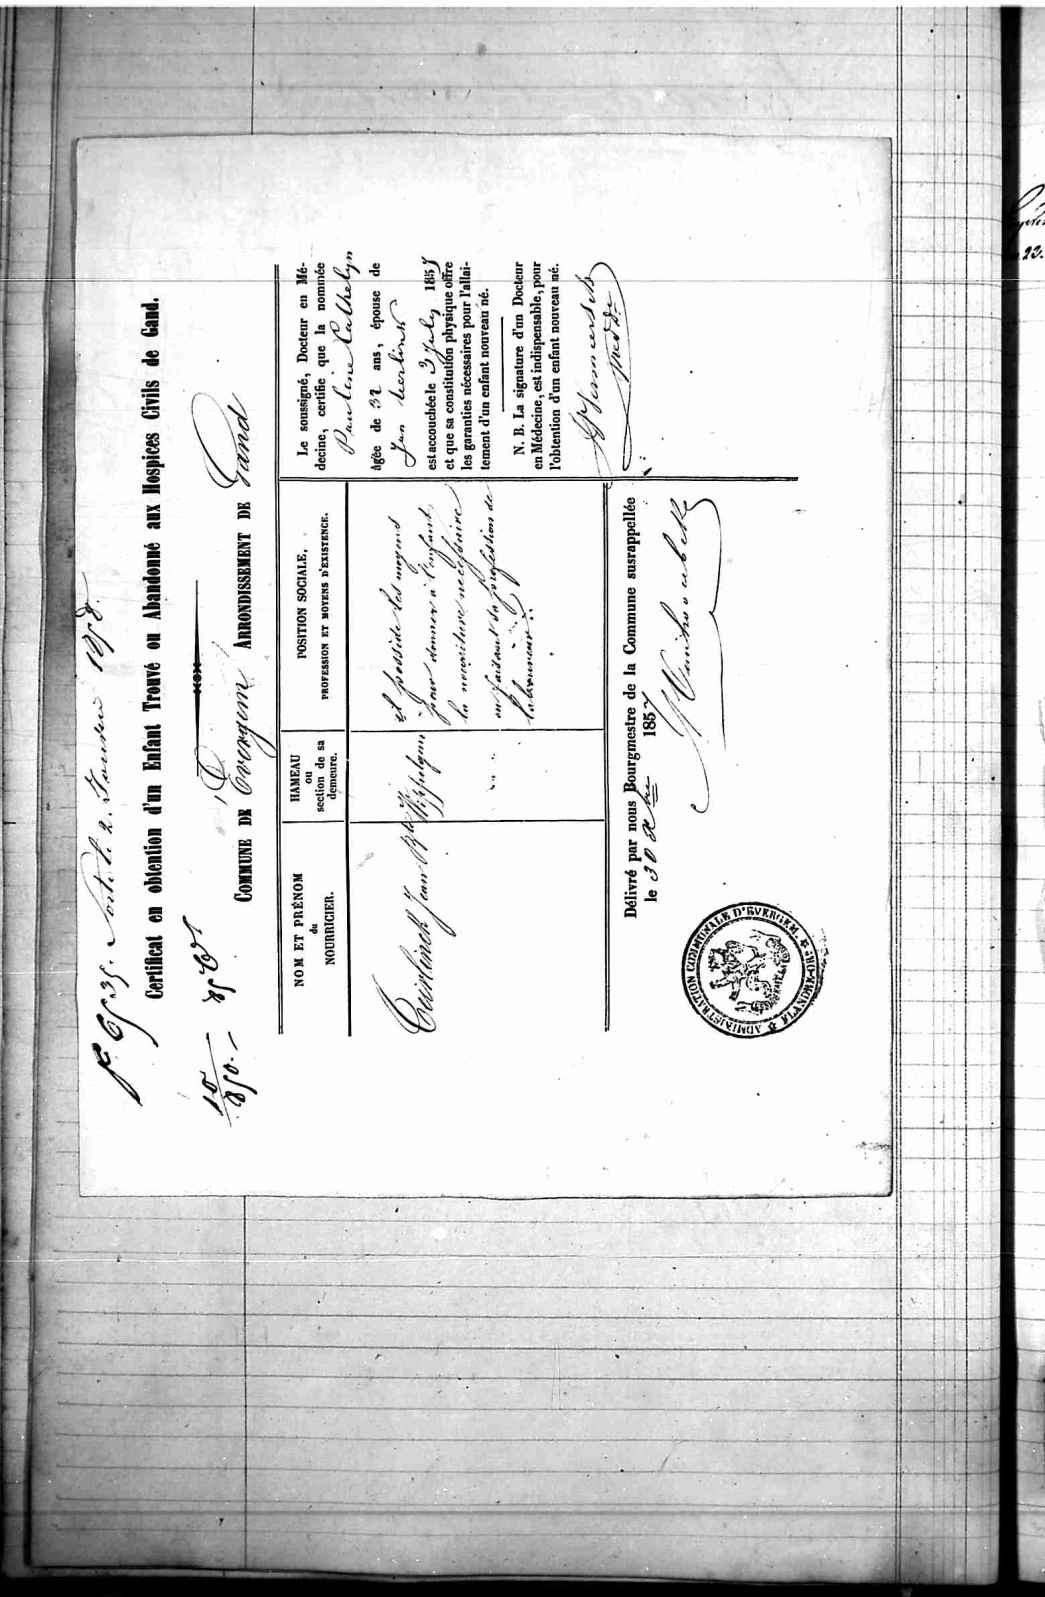 Sorti le 2 Janvier 1858.
Certificat en obtention d'un Enfant Trouvé ou Abandonné aux Hospices Civils de Gand.
COMMUNE DE Evergem ARRONDISSEMENT DE Gand
NOM ET PRÉNOM
du
NOURRICIER.
HAMEAU
ou
section de sa
demeure.
POSITION SOCIALE,
PROFESSION ET MOYENS D'EXISTENCE.
Jean Bte
il posside les moyens
pour donner à l'enfant
la nouriture necessaire
en faisant la profession de
laboureur
Le soussigné, Docteur en Mé-
decine, certifie que la nommée
Pauline Cathelyn
âgée de 32 ans, épouse de
Jan
est accouchée le 3 July 1857
et que sa constitution physique offre
les garanties nécessaires pour l'allai-
tement d'un enfant nouveau né.
N. B. La signature d'un Docteur
en Médecine, est indispensable, pour
l'obtention d'un enfant nouveau né.
Délivré par nous Bourgmestre de la Commune susrappellée
le 30 Xbre 1857
ADMINISTRATION COMMUNALE D'EVERGEM.
FLANDRE-ORle
23.